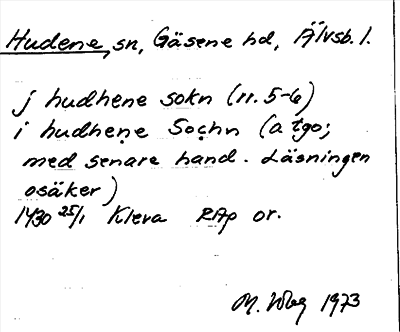 Hudene, sn, Gäsene hd, Älvsb. l.
j hudhene sokn (rr. 5-6)
i hudhene Sochn (a tgo;
med senare hand. Läsningen
osäker)
1430 25/1 Kleva RAp or.
M. 1973